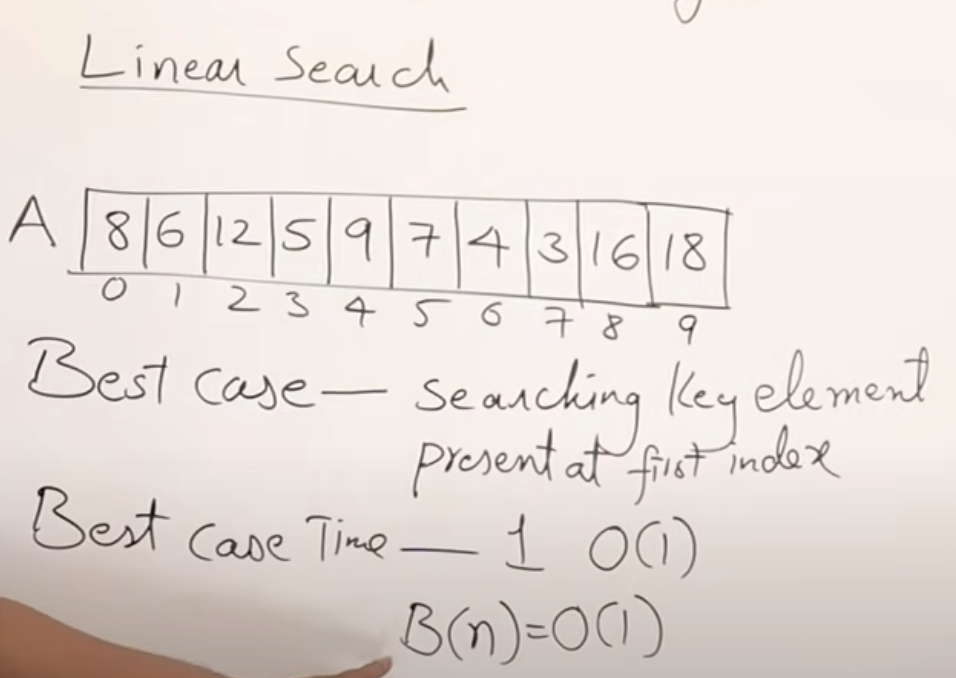 Linear Search
A 8 6 12 5 9 7 4 3 16 18
0 1 2 3 4 5 6 7 8 9
Best case — searching key element
present at first index
Best Case Time — 1 O(1)
B(n)=O(1)